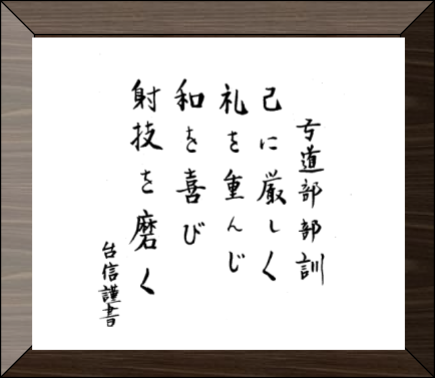 弓道部部訓
己に厳しく
礼を重んじ
和を喜び
射技を磨く
台信謹書